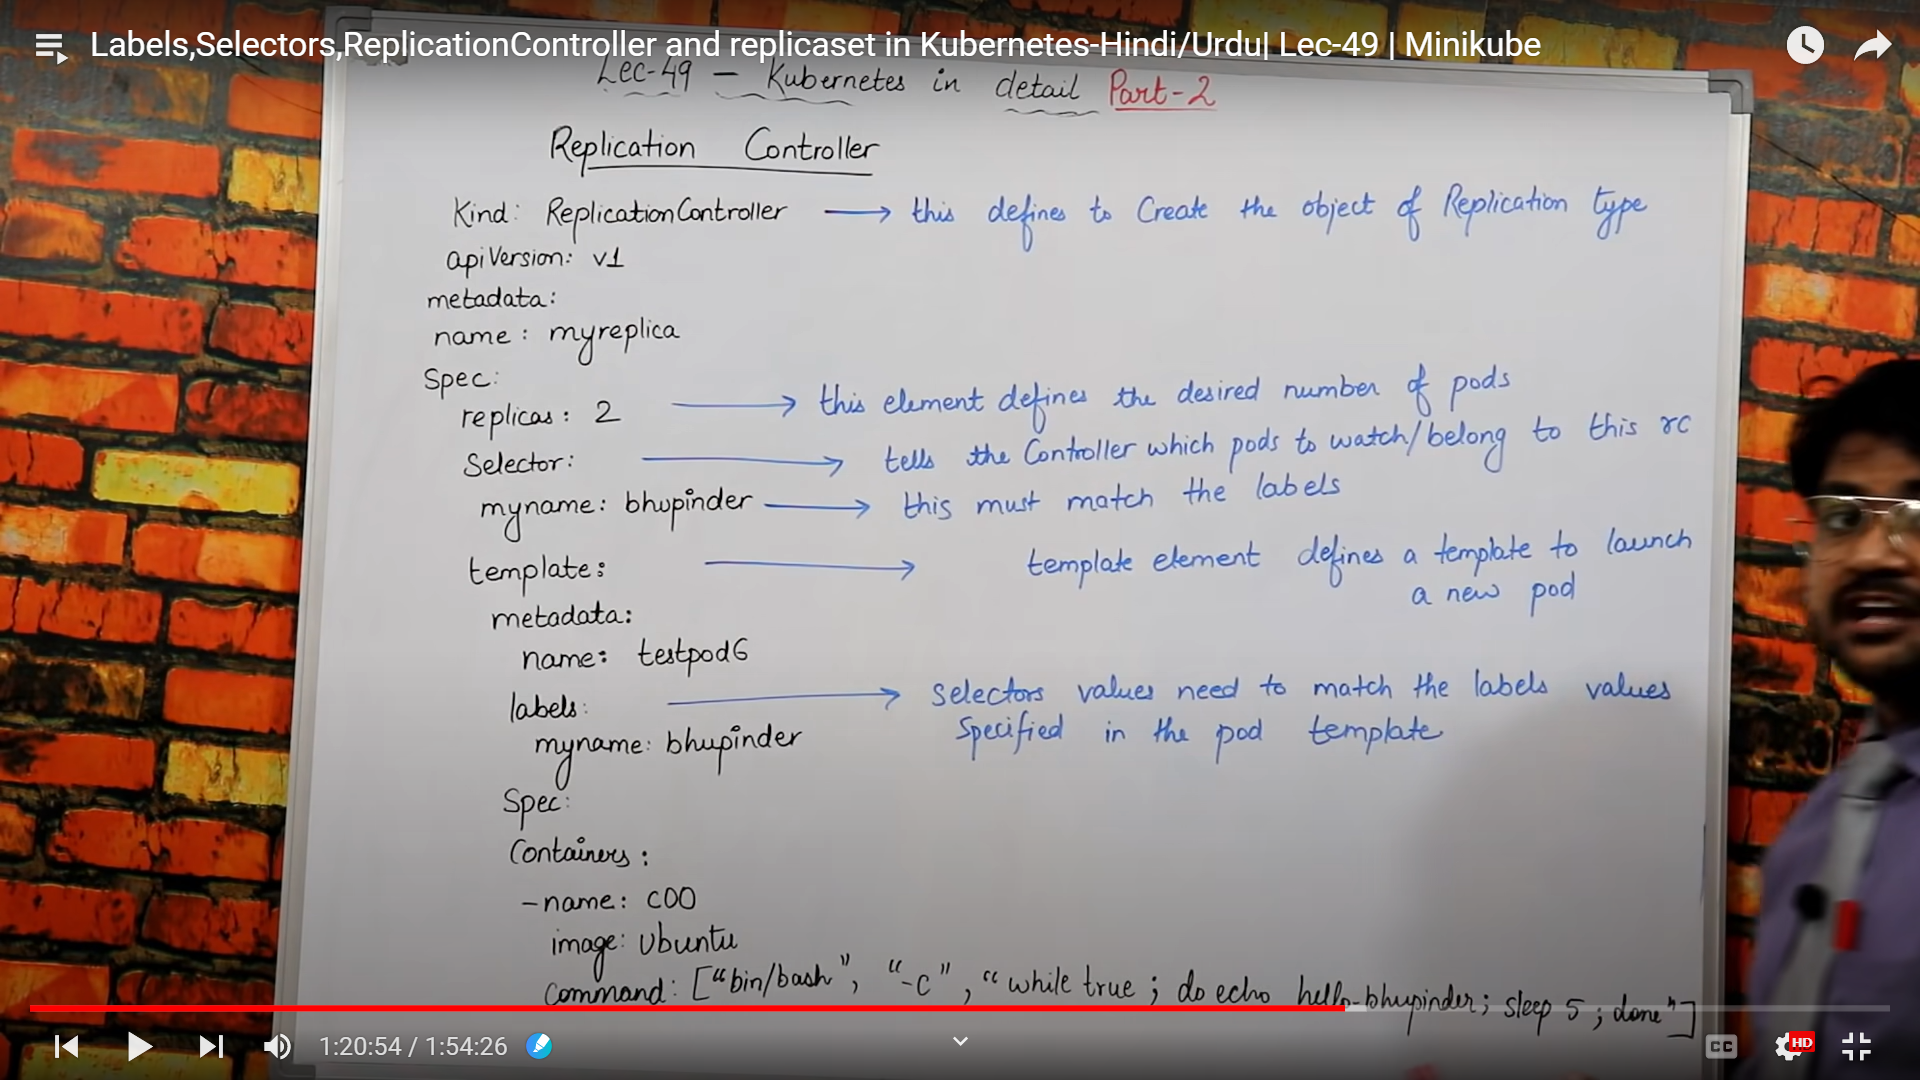 Labels,Selectors,ReplicationController and replicaset in Kubernetes-Hindi/Urdu| Lec-49 | Minikube
Lec-49 - Kubernetes in detail Part-2
Replication Controller
Kind: ReplicationController → this defines to Create the object of Replication type
apiVersion: v1
metadata:
name: myreplica
Spec:
replicas: 2 → this element defines the desired number of pods
Selector: → tells the Controller which pods to watch/belong to this rc
myname: bhupinder → this must match the labels
template: → template element defines a template to launch
a new pod
metadata:
name: testpod6
labels: → Selectors values need to match the labels values
Specified in the pod template
myname: bhupinder
Spec:
Containers:
-name: c00
image: Ubuntu
Command: ["bin/bash", "-c", "while true; do echo hello-bhupinder; sleep 5; done"]
1:20:54 / 1:54:26
CC
HD